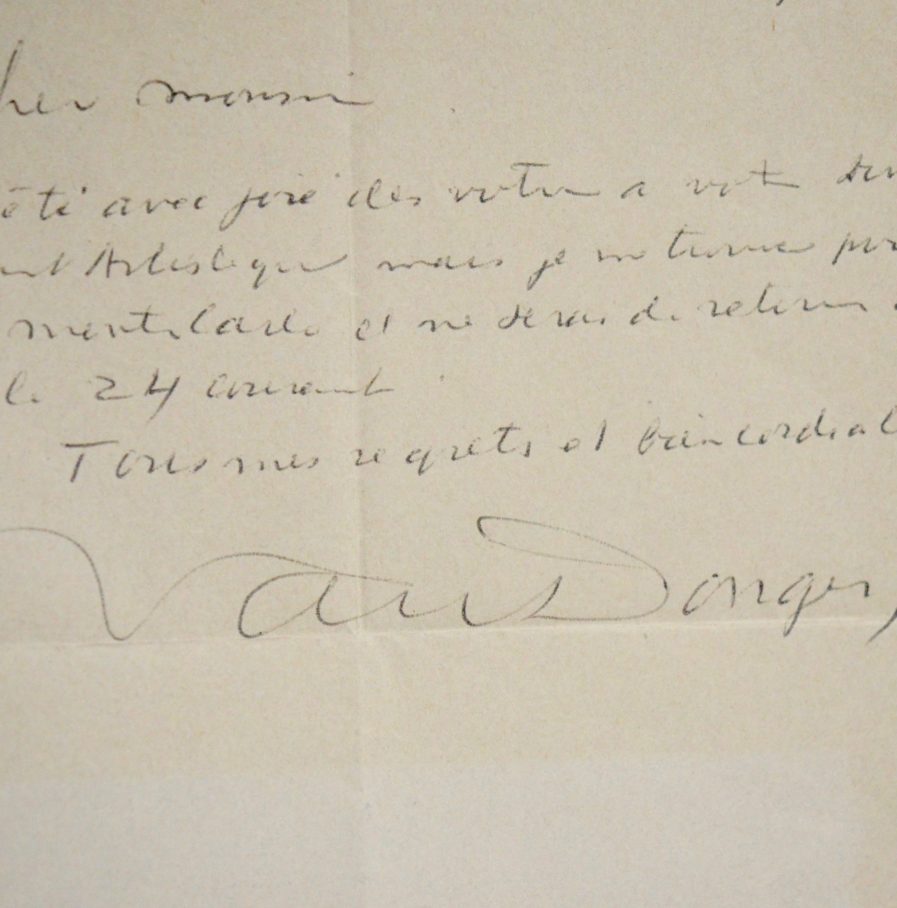 her monsi
été avec joie des votre a vot
Artistique mais je me trouve
et ne serai de retour
le 24 courant
Tous mes regrets et bien cordial
Van Dongen